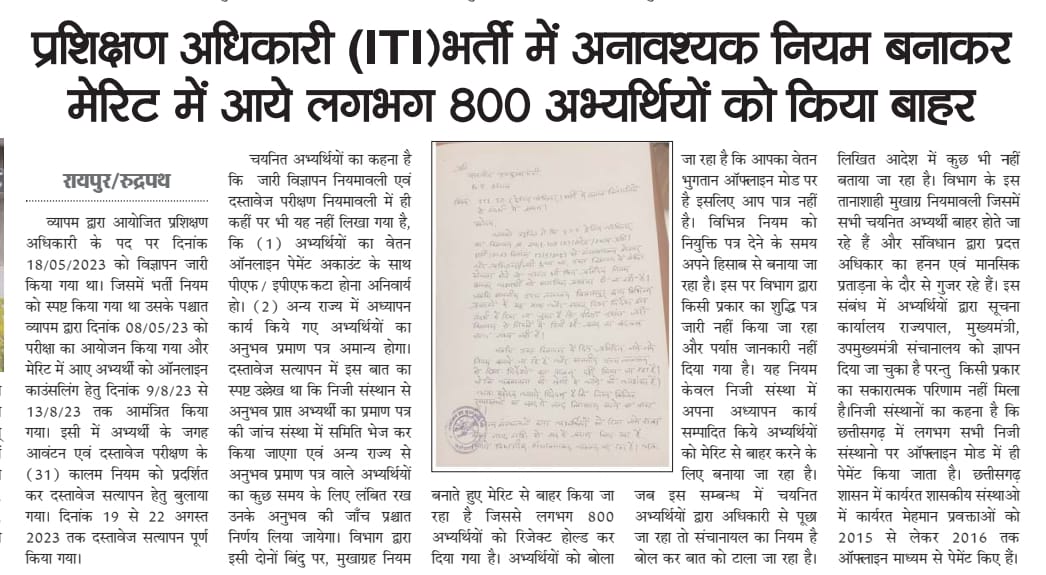 प्रशिक्षण अधिकारी (ITI)भर्ती में अनावश्यक नियम बनाकर
मेरिट में आये लगभग 800 अभ्यर्थियों को किया बाहर
रायपुर/रुद्रपथ
व्यापम द्वारा आयोजित प्रशिक्षण
अधिकारी के पद पर दिनांक
18/05/2023 को विज्ञापन जारी
किया गया था। जिसमें भर्ती नियम
को स्पष्ट किया गया था उसके पश्चात
व्यापम द्वारा दिनांक 08/05/23 को
परीक्षा का आयोजन किया गया और
मेरिट में आए अभ्यर्थी को ऑनलाइन
काउंसलिंग हेतु दिनांक 9/8/23 से
13/8/23 तक आमंत्रित किया
गया। इसी में अभ्यर्थी के जगह
आवंटन एवं दस्तावेज परीक्षण के
(31) कालम नियम को प्रदर्शित
कर दस्तावेज सत्यापन हेतु बुलाया
गया। दिनांक 19 से 22 अगस्त
2023 तक दस्तावेज सत्यापन पूर्ण
किया गया।
चयनित अभ्यर्थियों का कहना है
कि जारी विज्ञापन नियमावली एवं
दस्तावेज परीक्षण नियमावली में ही
कहीं पर भी यह नहीं लिखा गया है,
कि (1) अभ्यर्थियों का वेतन
ऑनलाइन पेमेंट अकाउंट के साथ
पीएफ/ इपीएफ कटा होना अनिवार्य
हो। (2) अन्य राज्य में अध्यापन
कार्य किये गए अभ्यर्थियों का
अनुभव प्रमाण पत्र अमान्य होगा।
दस्तावेज सत्यापन में इस बात का
स्पष्ट उल्लेख था कि निजी संस्थान से
अनुभव प्राप्त अभ्यर्थी का प्रमाण पत्र
की जांच संस्था में समिति भेज कर
किया जाएगा एवं अन्य राज्य से
अनुभव प्रमाण पत्र वाले अभ्यर्थियों
का कुछ समय के लिए लंबित रख
उनके अनुभव की जाँच प्रश्चात
निर्णय लिया जायेगा। विभाग द्वारा
इसी दोनों बिंदु पर, मुखाग्रह नियम
बनाते हुए मेरिट से बाहर किया जा
रहा है जिससे लगभग 800
अभ्यर्थियों को रिजेक्ट होल्ड कर
दिया गया है। अभ्यर्थियों को बोला
जा रहा है कि आपका वेतन
भुगतान ऑफ्लाइन मोड पर
है इसलिए आप पात्र नहीं
है। विभिन्न नियम को
नियुक्ति पत्र देने के समय
अपने हिसाब से बनाया जा
रहा है। इस पर विभाग द्वारा
किसी प्रकार का शुद्धि पत्र
जारी नहीं किया जा रहा
और पर्याप्त जानकारी नहीं
दिया गया है। यह नियम
केवल निजी संस्था में
अपना अध्यापन कार्य
सम्पादित किये अभ्यर्थियों
को मेरिट से बाहर करने के
लिए बनाया जा रहा है।
जब इस सम्बन्ध में चयनित
अभ्यर्थियों द्वारा अधिकारी से पूछा
जा रहा तो संचानायल का नियम है
बोल कर बात को टाला जा रहा है।
लिखित आदेश में कुछ भी नहीं
बताया जा रहा है। विभाग के इस
तानाशाही मुखाग्र नियमावली जिसमें
सभी चयनित अभ्यर्थी बाहर होते जा
रहे हैं और संविधान द्वारा प्रदत्त
अधिकार का हनन एवं मानसिक
प्रताड़ना के दौर से गुजर रहे हैं। इस
संबंध में अभ्यर्थियों द्वारा सूचना
कार्यालय राज्यपाल, मुख्यमंत्री,
उपमुख्यमंत्री संचानालय को ज्ञापन
दिया जा चुका है परन्तु किसी प्रकार
का सकारात्मक परिणाम नहीं मिला
है।निजी संस्थानों का कहना है कि
छत्तीसगढ़ में लगभग सभी निजी
संस्थानो पर ऑफ्लाइन मोड में ही
पेमेंट किया जाता है। छत्तीसगढ़
शासन में कार्यरत शासकीय संस्थाओ
में कार्यरत मेहमान प्रवक्ताओं को
2015 से लेकर 2016 तक
ऑफ्लाइन माध्यम से पेमेंट किए हैं।